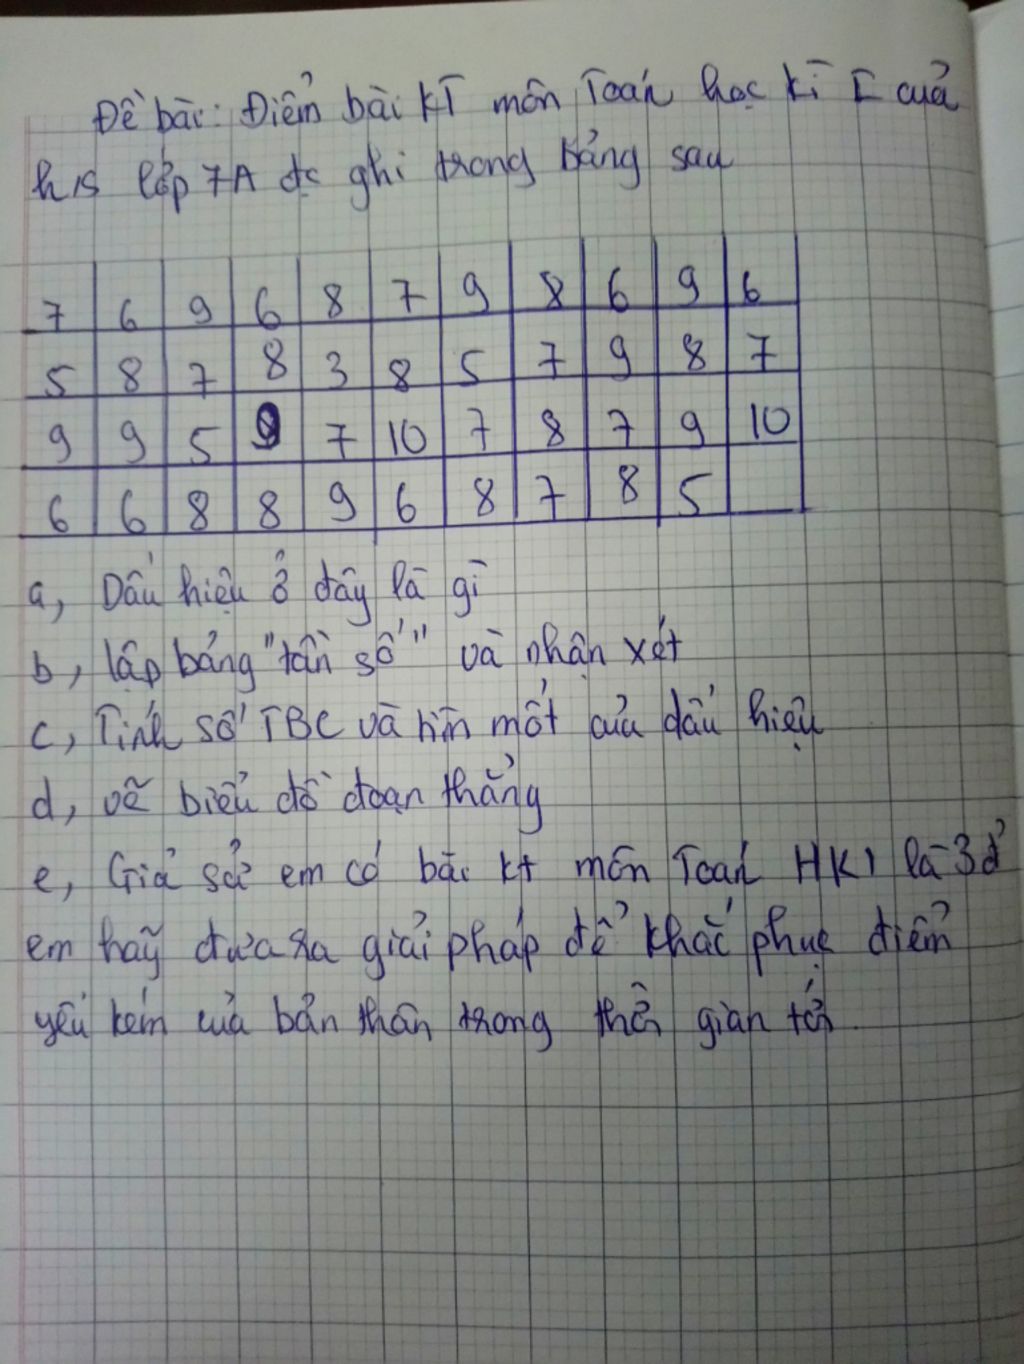 Đề bài: Điểm bài KT môn Toán học kì I của
h/s lớp 7A đc ghi trong bảng sau
7 6 9 6 8 7 9 8 6 9 6
5 8 7 8 3 8 5 7 9 8 7
9 9 5 9 7 10 7 8 7 9 10
6 6 8 8 9 6 8 7 8 5
a, Dấu hiệu ở đây là gì
b, lập bảng "tần số" và nhận xét
c, Tính số TBC và tìm mốt của dấu hiệu
d, vẽ biểu đồ đoạn thẳng
e, Giả sử em có bài kt môn Toán HK1 là 3đ
em hãy đưa ra giải pháp để khắc phục điểm
yếu kém của bản thân trong thời gian tới.